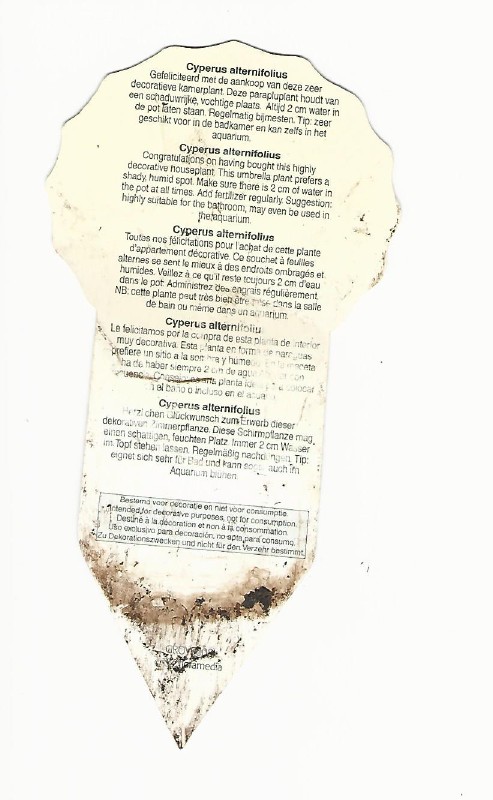 Cyperus alternifolius
Gefeliciteerd met de aankoop van deze zeer
decoratieve kamerplant. Deze parapluplant houdt van
een schaduwrijke, vochtige plaats. Altijd 2 cm water in
de pot laten staan. Regelmatig bijmesten. Tip: zeer
geschikt voor in de badkamer en kan zelfs in het
aquarium.
Cyperus alternifolius
Congratulations on having bought this highly
decorative houseplant. This umbrella plant prefers a
shady, humid spot. Make sure there is 2 cm of water in
the pot at all times. Add fertilizer regularly. Suggestion:
highly suitable for the bathroom, may even be used in
the aquarium.
Cyperus alternifolius
Toutes nos félicitations pour l'achat de cette plante
d'appartement décorative. Ce souchet à feuilles
alternes se sent le mieux à des endroits ombragés et
humides. Veillez à ce qu'il reste toujours 2 cm d'eau
dans le pot. Administrez des engrais régulièrement.
NB: cette plante peut très bien être mise dans la salle
de bain ou même dans un aquarium.
Cyperus alternifoliu
Le felicitamos por la compra de esta planta de interior
muy decorativa. Esta planta en forma de paraguas
prefiere un sitio a la sombra y humedo. maceta
ha de haber siempre 2 cm de agua. con
planta colocar
en el baño o incluso en el
Cyperus alternifolius
Herzlichen Glückwunsch zum Erwerb dieser
dekorativen Zimmerpflanze. Diese Schirmpflanze mag
einen schattigen, feuchten Platz. Immer 2 cm Wasser
im Topf stehen lassen. Regelmäßig nachdüngen. Tip:
eignet sich sehr für Bad und kann sogar auch im
Aquarium blühen.
Bestemd voor decoratie en niet voor consumptie.
Intended for decorative purposes, not for consumption.
Destiné à la décoration et non à la consommation.
Uso exclusivo para decoración, no apta para consumo.
Zu Dekorationszwecken und nicht für den Verzehr bestimmt.